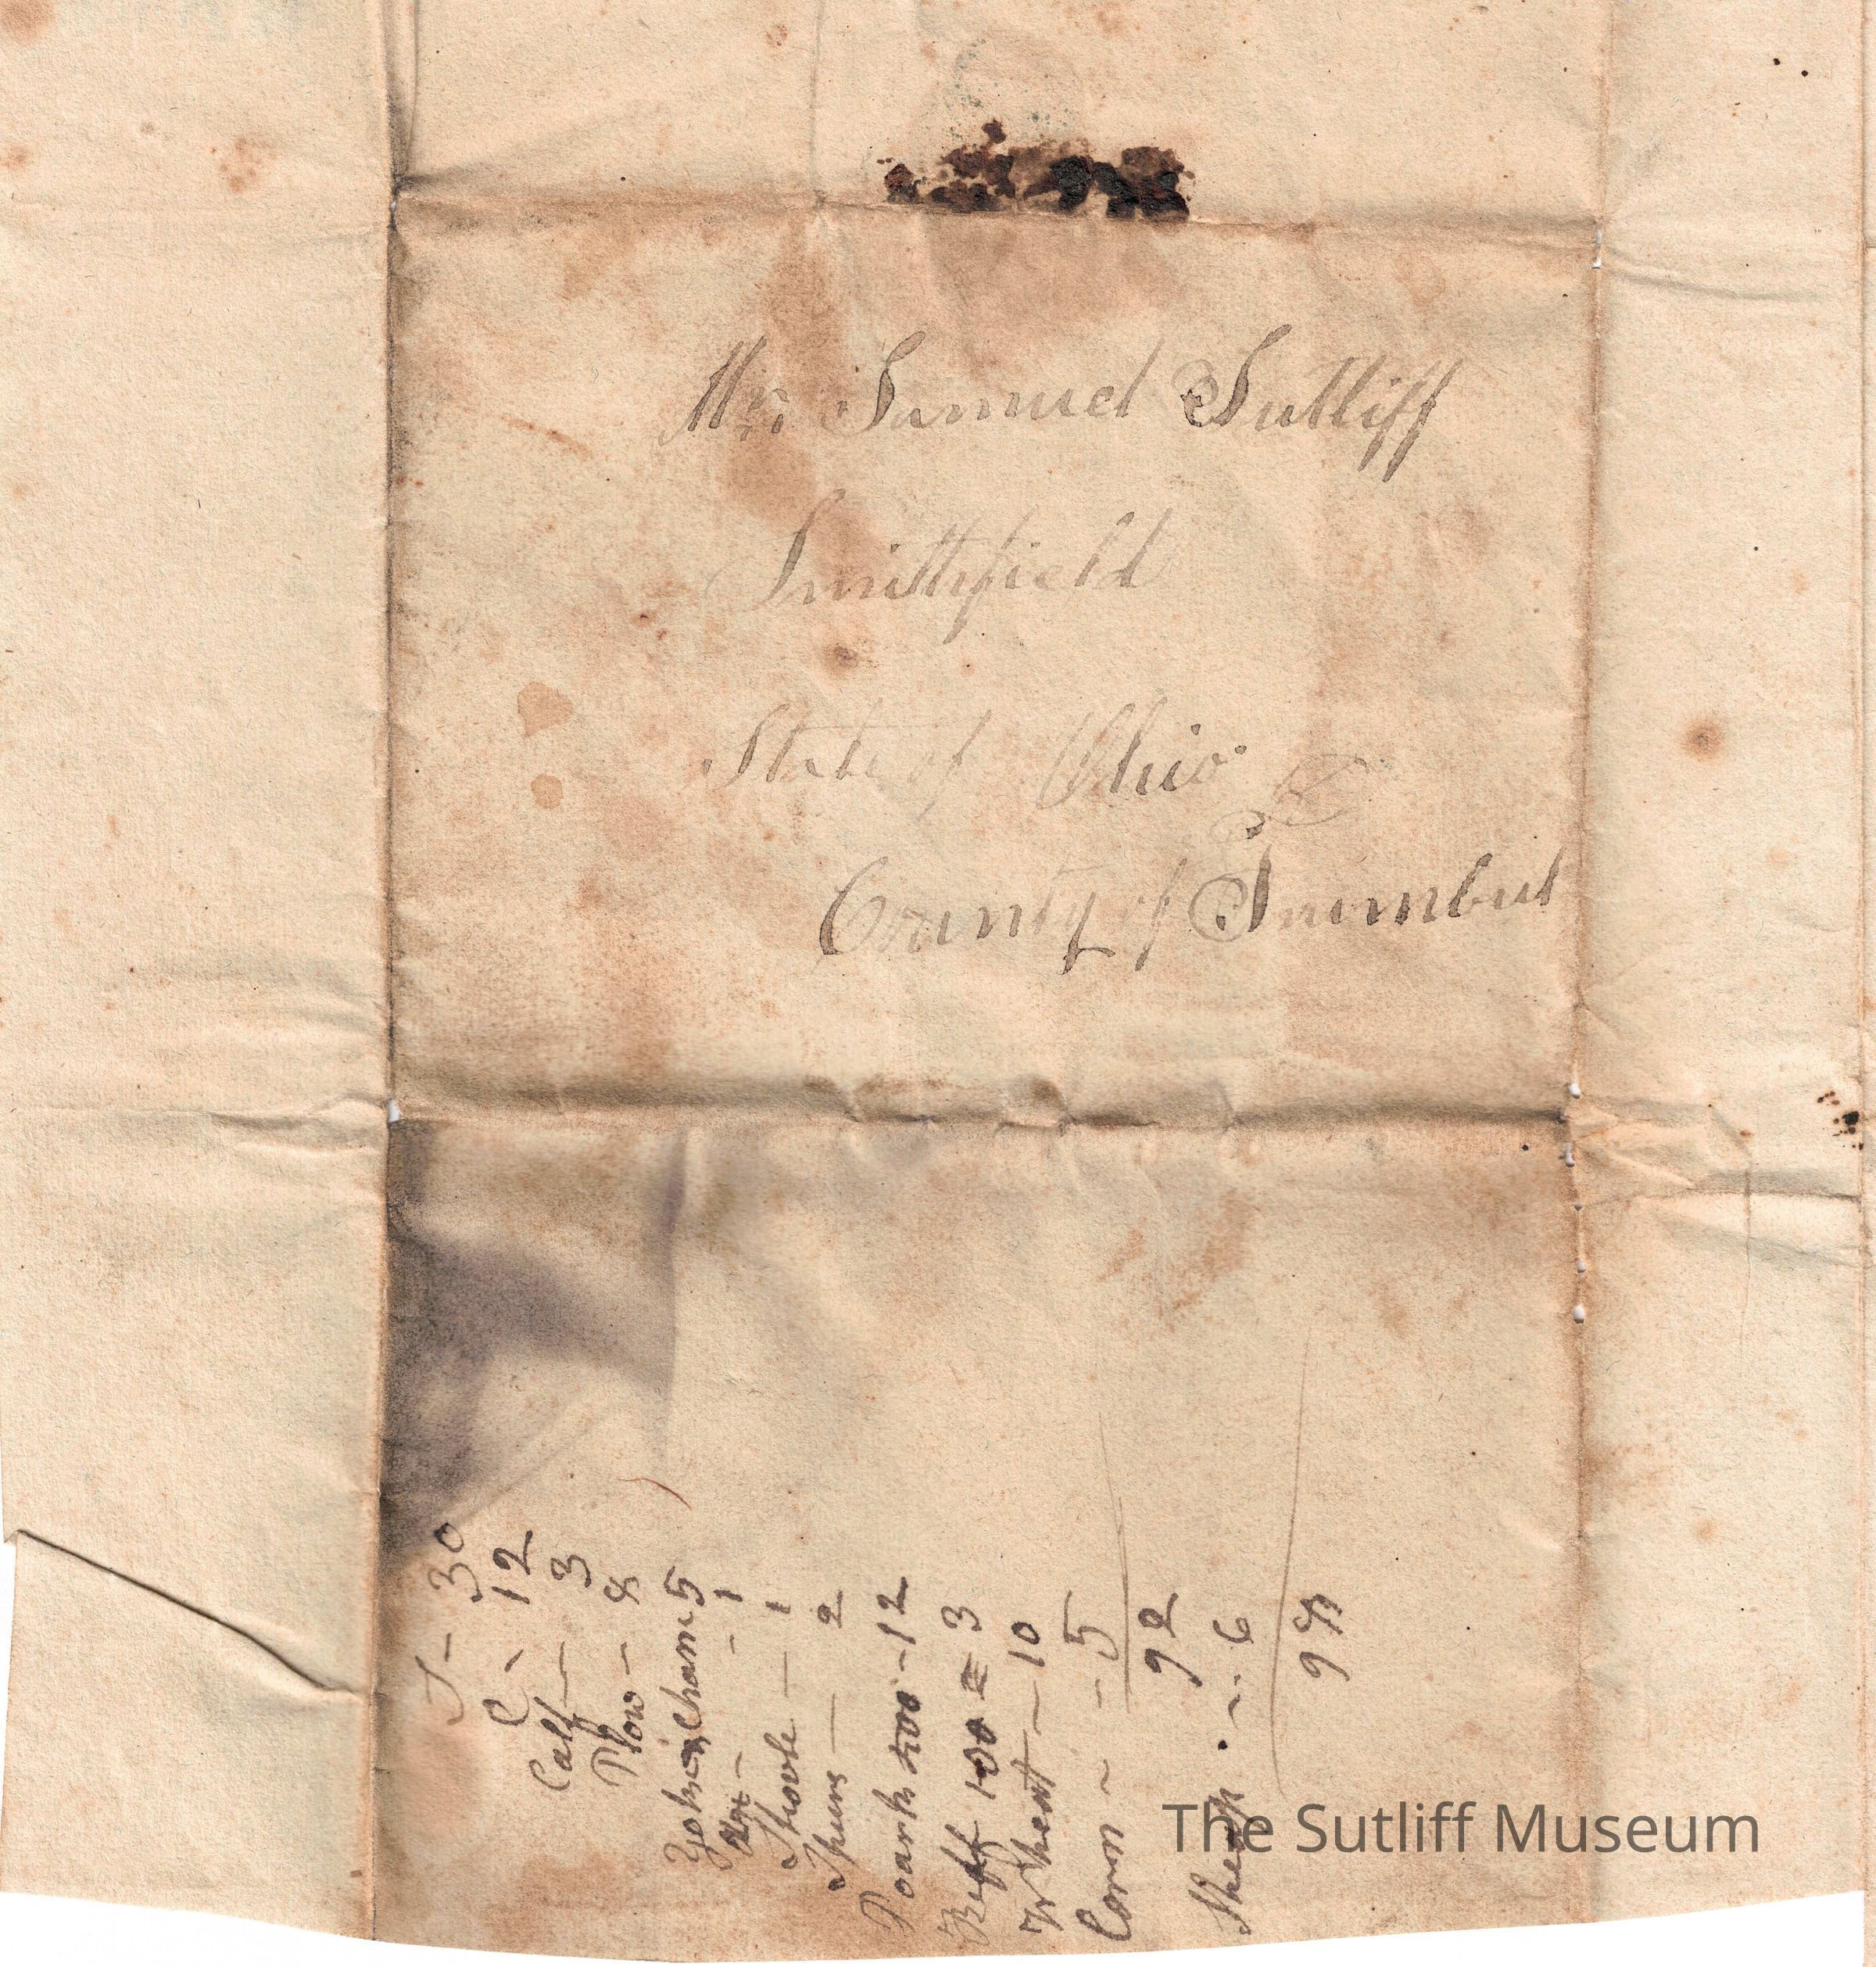 Mr. Samuel Sutliff
Smithfield
State of Ohio
County of Trumbul
30
C - 12
Calf — 3
Plow - 8
Chain 5
- 1
Shovle — 1
— 2
Poark - 12
Beff 100 = 3
Wheat - 10
Corn - 5
92
Sheep - 6
98
The Sutliff Museum